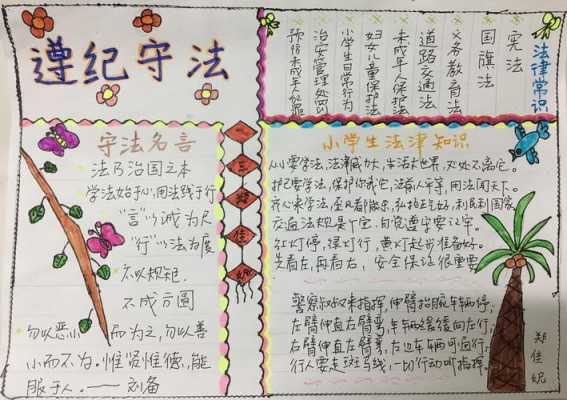 遵纪守法
法律常识
宪法
国旗法
义务教育法
道路交通法
未成年人保护法
妇女儿童保护法
小学生日常行为
治安管理处罚
守法名言
法乃治国之本
学法始于心,用法终于行
"言"以诚为尺
"行"以法为度
不以规矩,
不成方圆
勿以恶小 而为之,勿以善
小而不为。惟贤惟德,能
服于人。——刘备
郑佳妮
小学生法津知识
从小要学法,法津威力大,生活大世界,处处不离它。
护己要学法,保护你我它,法前人平等,用法闯天下。
齐心来学法,全民都参加,利民利国家
交通法规是个宝,自觉遵守要记牢。
红灯停,绿灯行,黄灯起步准备好。
先看左,再看右,安全保证很重要
警察叔叔来指挥,伸臂抬腕车辆停,
左臂伸直右臂弯,车辆缓缓向左行,
右臂伸直左臂弯,右边车辆可向行,
行人要走斑马线,一切行动听指挥。
郑佳妮